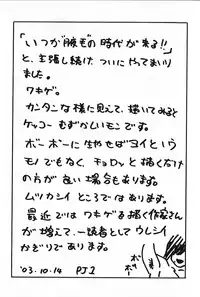 「いつか腋毛の時代が来る!!」
と、主張し続け ついにやってまいり
ました。
ワキゲ。
カンタンな様に見えて、描いてみると
ケッコーむずかしいモンです。
ボーボーに生やせばヨイという
モノでもなく、チョロッと描くだけ
の方が良い場合もあります。
ムツカシイところではあります。
最近では ワキゲる描く作家さん
が増えて、一読者としてウレシイ
かぎりであります。
'03.10.14
ボーボー